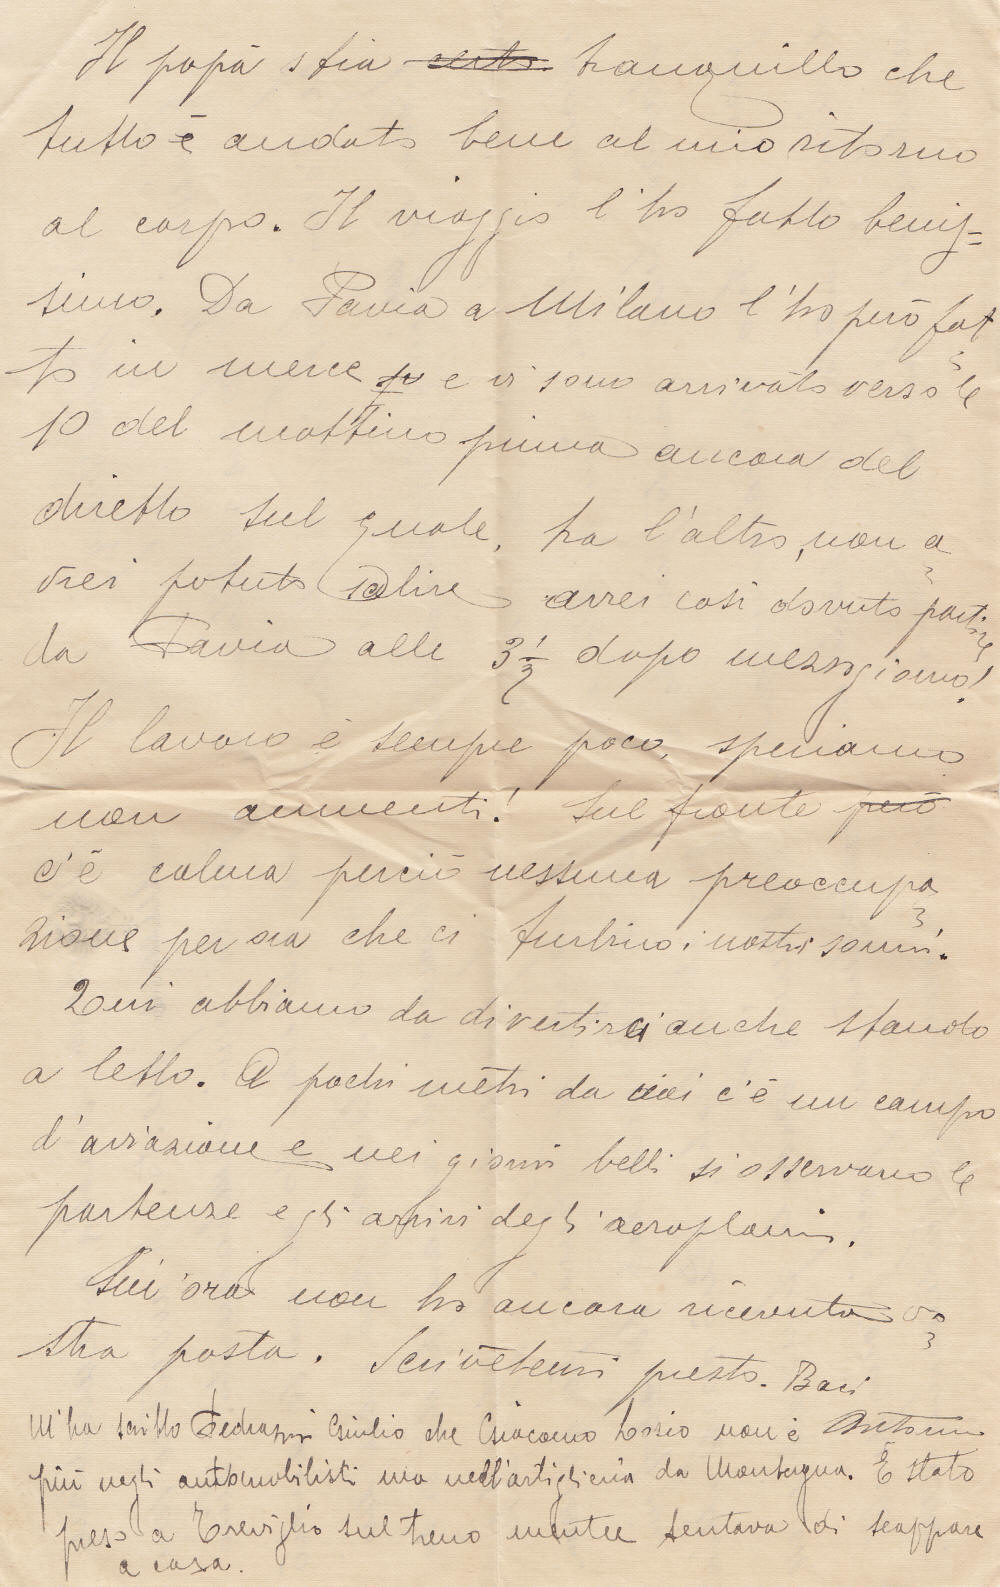 Il papà stia certo tranquillo che
tutto è andato bene al mio ritorno
al corpo. Il viaggio l'ho fatto benis=
simo. Da Pavia a Milano l'ho però fat
to in merce e vi sono arrivato verso le
10 del mattino prima ancora del
diretto sul quale, tra l'altro, non a
vrei potuto salire avrei così dovuto partire
da Pavia alle 3 1/2 dopo mezzogiorno!
Il lavoro è sempre poco, speriamo
non aumenti! Sul fronte però
c'è calma perciò nessuna preoccupa
zione per ora che ci turbino i nostri sonni.
Qui abbiamo da divertirci anche stando
a letto. A pochi metri da noi c'è un campo
d'aviazione e nei giorni belli si osservano le
partenze e gli arrivi degli aeroplani.
Sin'ora non ho ancora ricevuto vo
stra posta. Scrivetemi presto. Baci
M'ha scritto Pedrazzini Giulio che Giacomo Losio non è Antonio
più negli automobilisti ma nell'artiglieria da Montagna. È stato
preso a Treviglio sul treno mentre tentava di scappare
a casa.